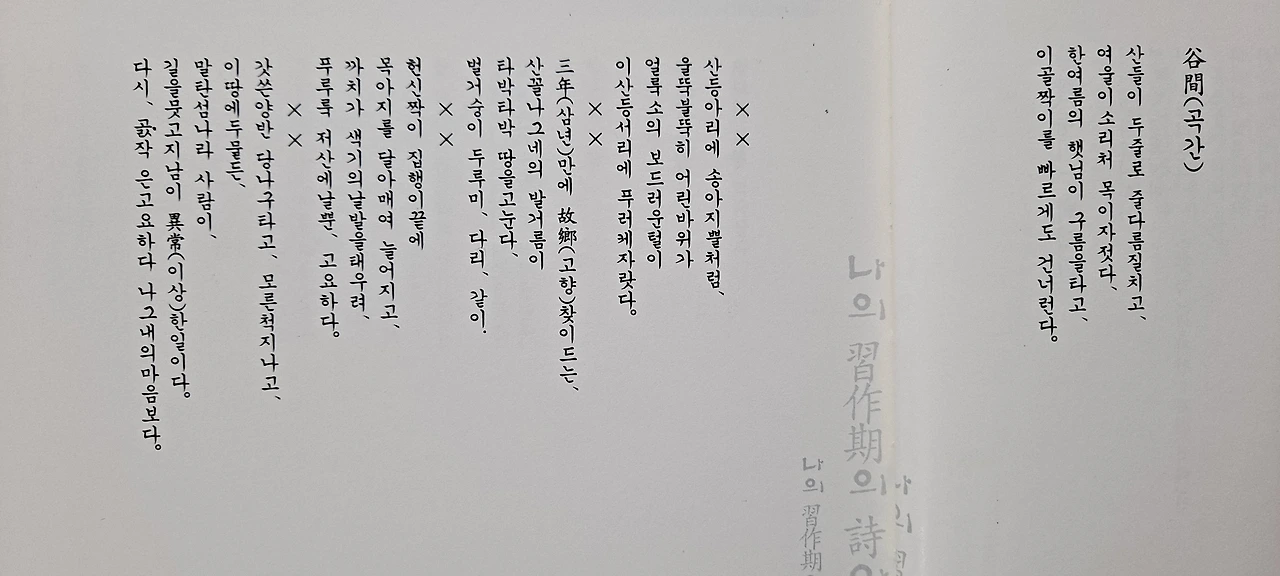 谷間(곡간)
산들이 두줄로 줄다름질치고、
여울이 소리처 목이자젓다、
한여름의 햇님이 구름을타고、
이골짝이를 빠르게도 건너런다。
나의 習作期의 詩
나의 習作期
× ×
산등아리에 송아지뿔처럼、
울뚝불뚝히 어린바위가
얼룩소의 보드러운털이
이산등서리에 푸러케자랏다。
× ×
三年(삼년)만에 故鄕(고향)찾이드는、
산꼴나그네의 발거름이
타박타박 땅을고눈다、
벌거숭이 두루미、다리、같이!
× ×
헌신짝이 집행이끝에
목아지를 달아매여 늘어지고、
까치가 색기의날발을태우려、
푸룩룩 저산에날뿐、고요하다。
× ×
갓쓴양반 당나구타고、모른척지나고、
이땅에두물든、
말탄섬나라 사람이、
길을뭇고지남이 異常(이상)한일이다。
다시、곬작 은고요하다 나그내의마음보다。